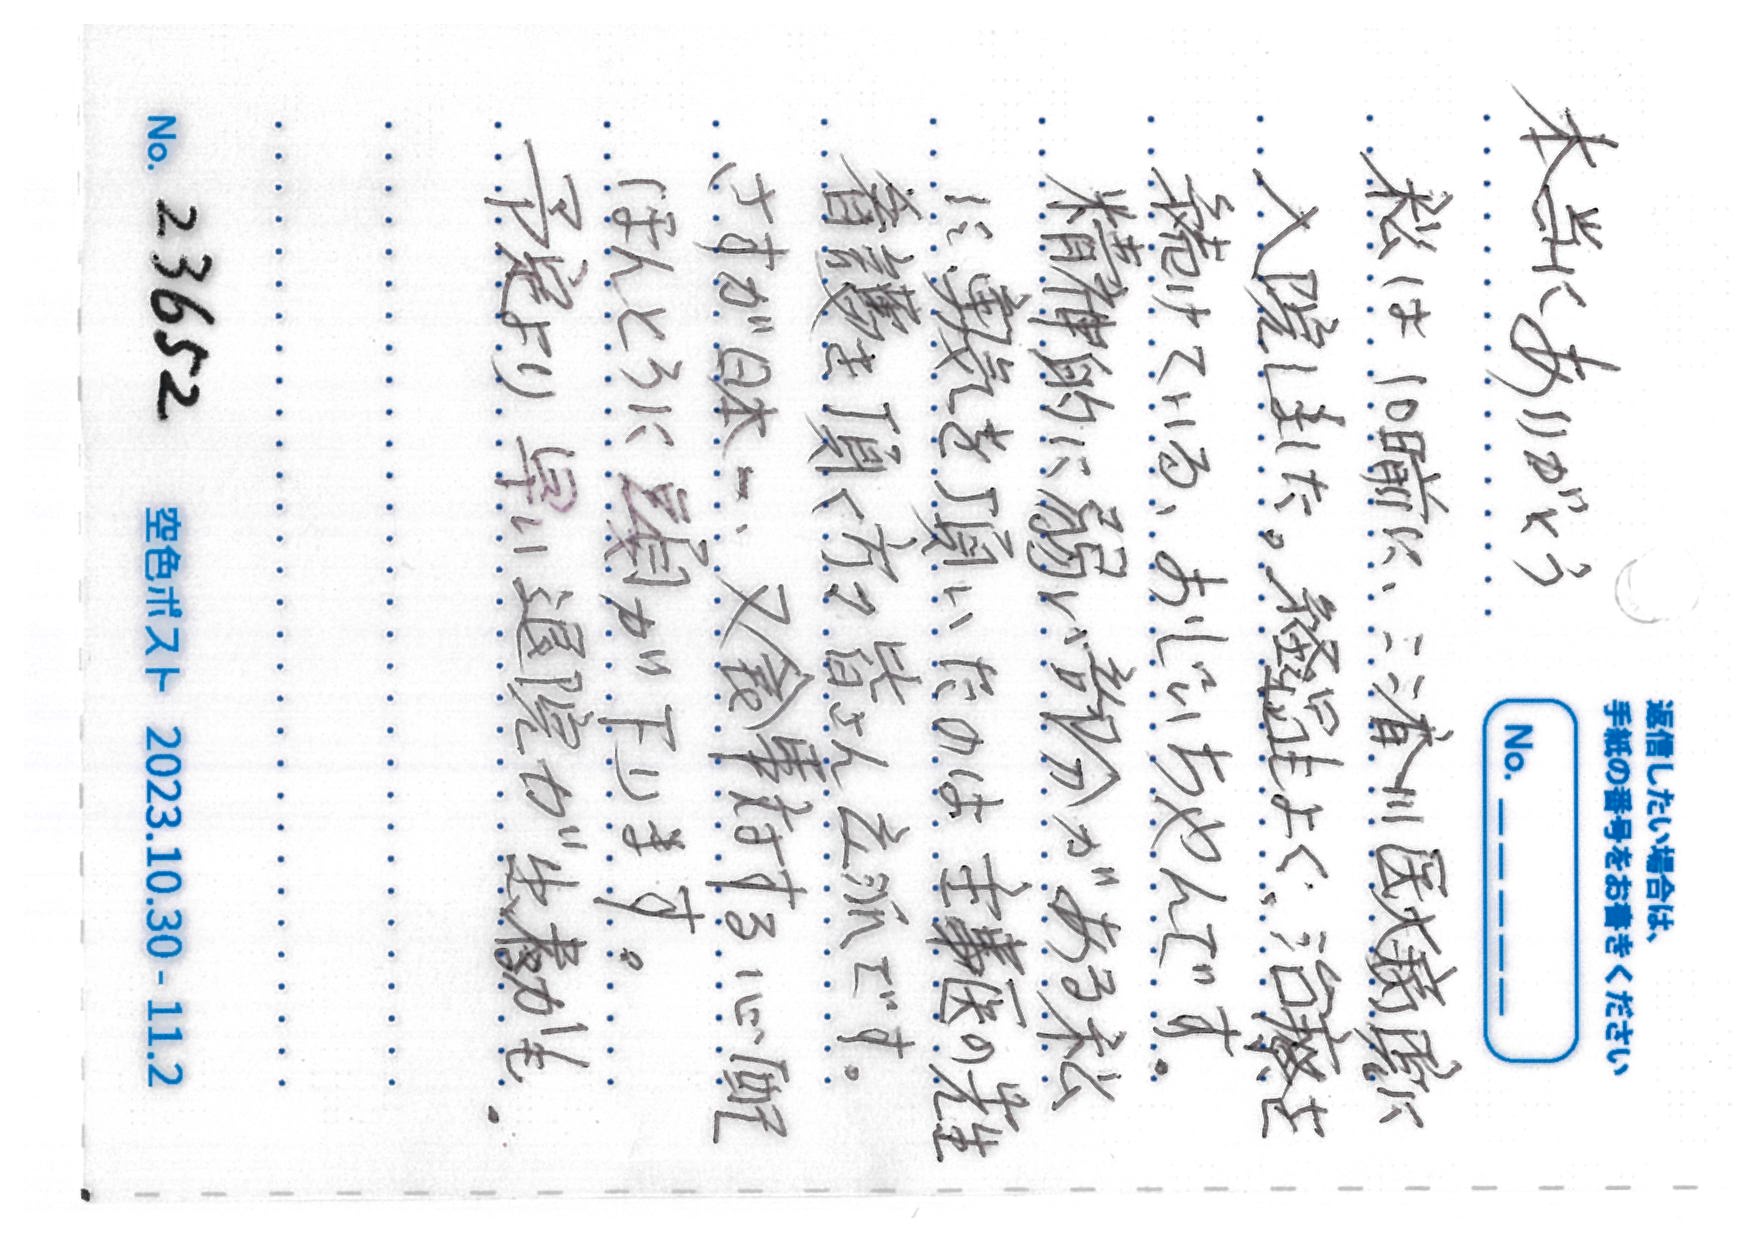 返信したい場合は、
手紙の番号をお書きください
No. _ _ _ _ _
本当にありがとう
私は10日前に、ここ香川医大病院に
入院しました。経過もよく、治療を
続けている、おじいちゃんです。
精神的に弱い部分がある私
に勇気を頂いたのは主事医の先生
看護を頂く方々皆さん立派です。
さすが日本一、又食事対する心配
ほんとうに頭が下ります。
予定より早い退院が出来るかも.
No. 23652
空色ポスト 2023.10.30 - 11.2